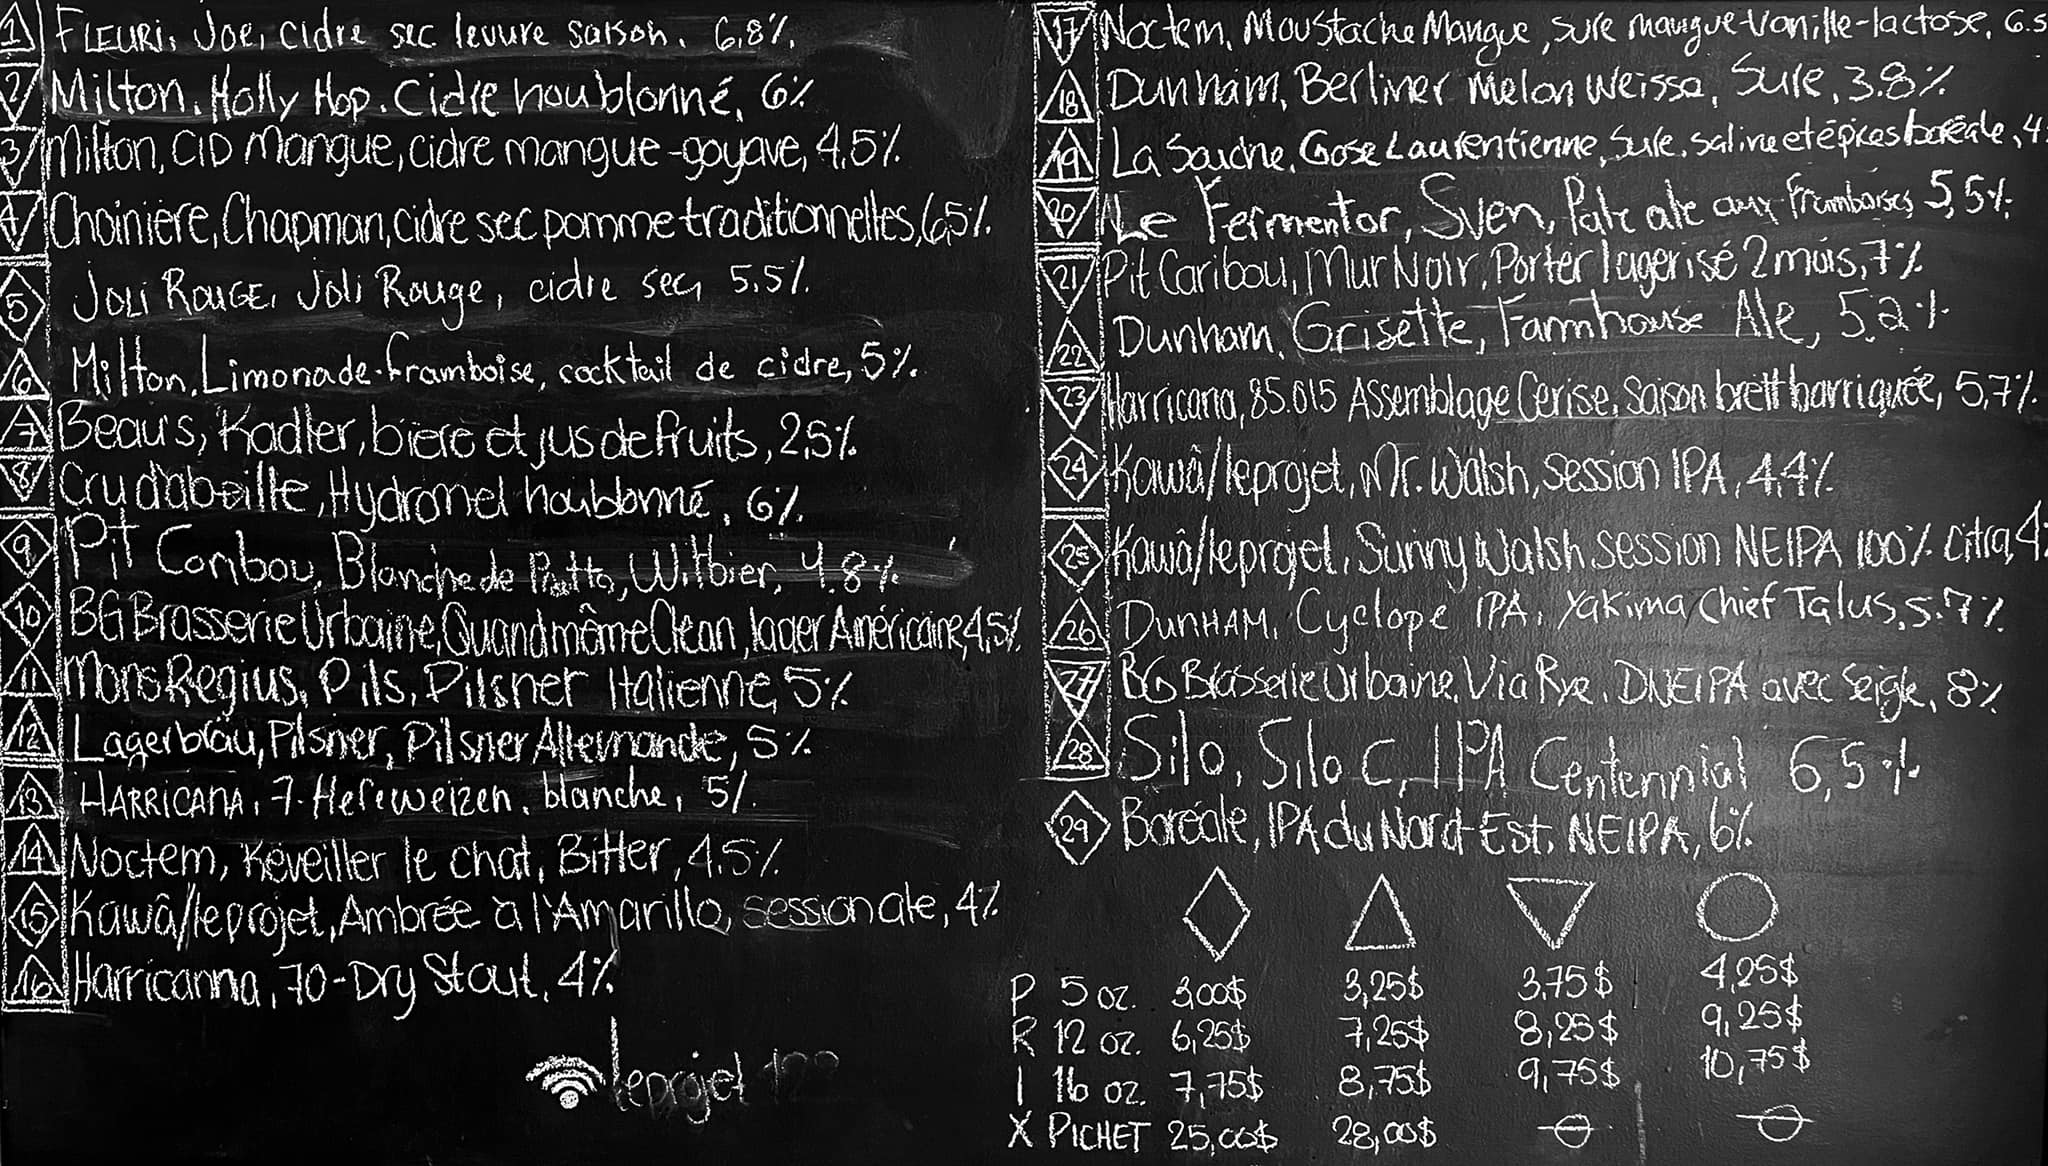 1 FLEURI, Joe, cidre sec levure saison, 6,8%
2 Milton, Holly Hop, Cidre houblonné, 6%
3 Milton, CID Mangue, cidre mangue-goyave, 4,5%
4 Choinière, Chapman, cidre sec pomme traditionnelles, 6,5%
5 JOLI ROUGE, Joli Rouge, cidre sec, 5.5%
6 Milton, Limonade-framboise, cocktail de cidre, 5%
7 Beau's, Kadler, bière et jus de fruits, 2,5%
8 Cru d'abeille, Hydromel houblonné, 6%
9 Pit Caribou, Blanche de Pratto, Witbier, 4.8%
10 BG Brasserie Urbaine, Quand même Clean, lager Américaine, 4,5%
11 Mons Regius, Pils, Pilsner Italienne, 5%
12 Lagerbräu, Pilsner, Pilsner Allemande, 5%
13 HARRICANA, 7-Hefeweizen, blanche, 5%
14 Noctem, Réveiller le chat, Bitter, 4,5%
15 Kawâ/leprojet, Ambrée à l'Amarillo, session ale, 4%
16 Harricanna, 70-Dry Stout, 4%
leprojet
17 Noctem, Moustache Mangue, sure mangue-vanille-lactose, 6.5
18 Dunham, Berliner Melon Weisse, Sure, 3.8%
19 La Souche, Gose Laurentienne, Sure, saline et épices boréale, 4
20 Le Fermentor, Sven, Pale ale aux framboises, 5,5%
21 Pit Caribou, Mur Noir, Porter lagerisé 2 mois, 7%
22 Dunham, Grisette, Farmhouse Ale, 5,2%
23 Harricana, 85.015 Assemblage Cerise, saison brett barriquée, 5,7%
24 Kawâ/leprojet, Mr. Walsh, session IPA, 4,4%
25 Kawâ/leprojet, Sunny Walsh, session NEIPA 100% Citra, 4
26 DUNHAM, Cyclope IPA, Yakima Chief Talus, 5.7%
27 BG Brasserie Urbaine, Via Rye, DNEIPA avec seigle, 8%
28 Silo, Silo C, IPA Centennial 6,5%
29 Boréale, IPA du Nord-Est, NEIPA, 6%
P 5 oz. 3,00$ 3,25$ 3,75$ 4,25$
R 12 oz. 6,25$ 7,25$ 8,25$ 9,25$
I 16 oz. 7,75$ 8,75$ 9,75$ 10,75$
X PICHET 25,00$ 28,00$